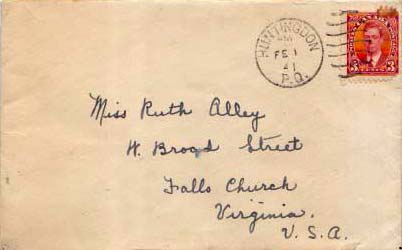 HUNTINGDON
PM
FE 1
41
P.Q.
CANADA
3 3
Miss Ruth Alley
W. Broad Street
Falls Church
Virginia.
U.S.A.